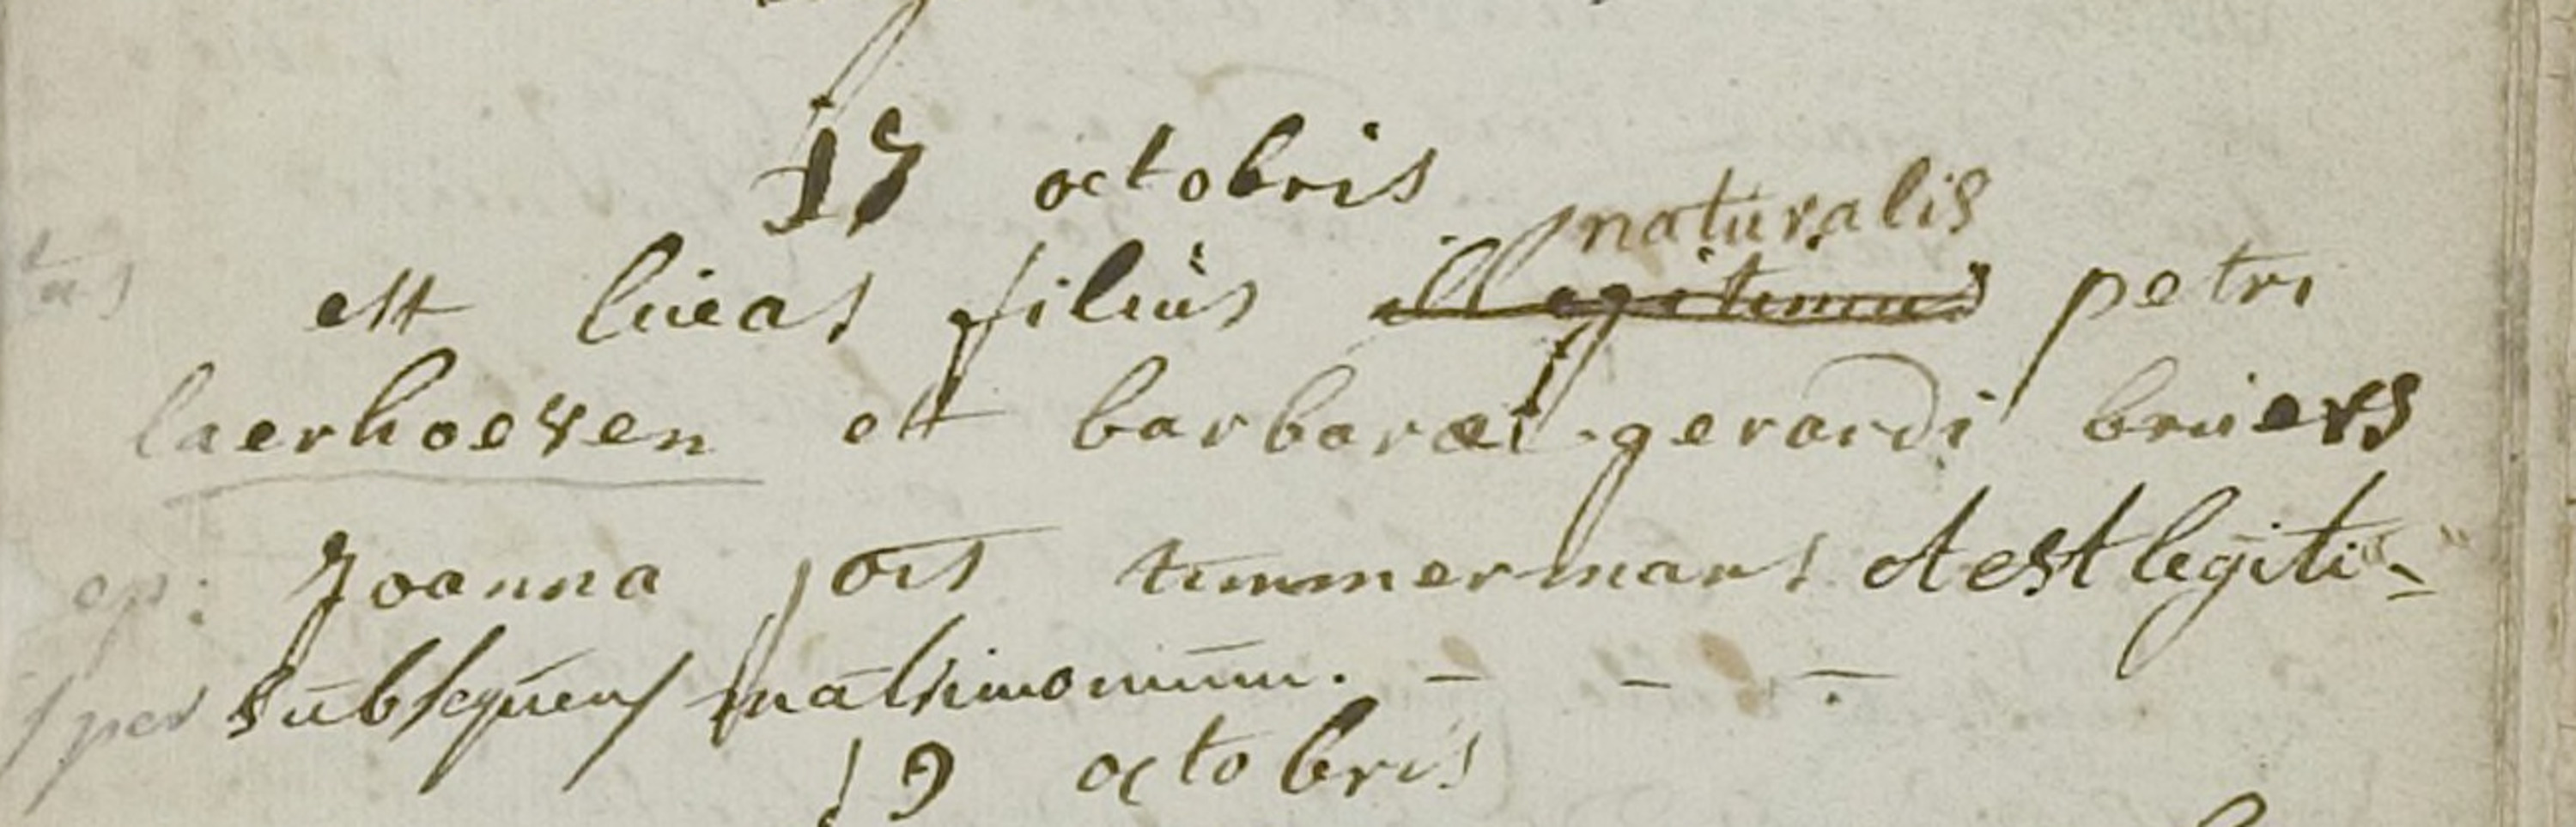 18 octobris
naturalis
tus est lucas filius illegitimus petri
laerhoeven ett barbaræ gerardi bruers
Joanna jois timmermans et est legiti-
per subsequens matrimonium. - - -
19 octobris